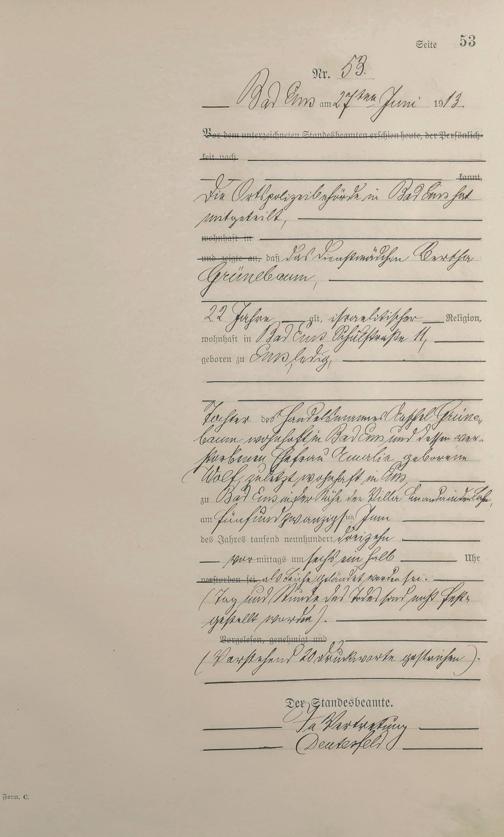 Seite 53
Nr. 53.
Bad Ems am 27ten Juni 1913.
Vor dem unterzeichneten Standesbeamten erschien heute, der Persönlich-
keit nach
kannt,
Die Ortspolizeibehörde in Bad Ems hat
mitgeteilt,
wohnhaft in
und zeigte an, daß das Dienstmädchen Bertha
Grünebaum,
22 Jahre alt, israelitischer Religion,
wohnhaft in Bad Ems Schulstraße 11,
geboren zu Ems, ledig,
Tochter des Handelsmannes Grüne-
baum wohnhaft in Bad Ems und dessen ver-
storbenen Ehefrau Amalia, geborene
Wolf, zuletzt wohnhaft in Ems,
zu Bad Ems in der Nähe der Villa in der Lahn,
am fünfundzwanzigsten Juni
des Jahres tausend neunhundert dreizehn
vormittags um sechs ein halb Uhr
verstorben sei, als Leiche geländet worden sei.
(Tag und Stunde des Todes sind nicht fest-
gestellt worden).
Vorgelesen, genehmigt und
(Vorstehend 20 Druckworte gestrichen).
Der Standesbeamte.
In Vertretung
Form. C.